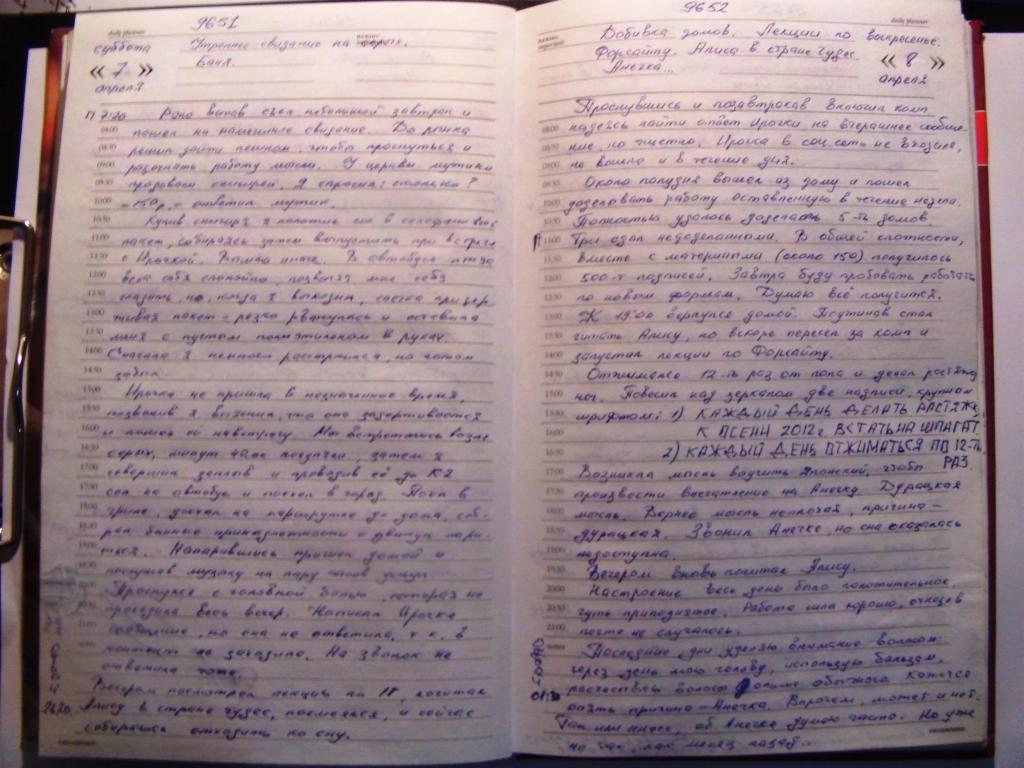 9651
daily planner
суббота
« 7 »
апреля
Утреннее свидание на
Баня.
П 7:20 Рано встав съел небольшой завтрак и
пошел на намеченное свидание. До рынка
решил дойти пешком, чтобы проснуться и
разогнать работу мысли. У церкви мужики
продавали снегирей. Я спросил: сколько?
– 150р. – ответил мужик.
Купив снегиря я положил его в
пакет, собираясь затем выпустить при встрече
с Ирочкой. Вышло иначе. В автобусе птица
вела себя спокойно, позволяя мне себя
гладить, но, когда я выходил, слегка придер-
живая пакет – резко рванулась и оставила
меня с пустым полиэтиленом в руках.
Сначала я немного расстроился, но потом
забил.
Ирочка не пришла в назначенное время,
позвонив я выяснил, что она задерживается
и пошел ей навстречу. Мы встретились возле
минут 40 погуляли, затем я
совершил и проводив её до К2
сел на автобус и поехал в город. Поел в
гриле, доехал на маршрутке до дома, соб-
рал банные принадлежности и двинул пари-
ться. Напарившись пришел домой и
послушав музыку на пару часов уснул.
Проснулся с головной болью, которая не
проходила весь вечер. Написал Ирочке
сообщение, но она не ответила, т.к. в
контакт не заходила. На звонок не
ответила тоже.
Вечером посмотрел лекцию по почитал
Алису в стране чудес, посмеялся, и сейчас
собираюсь отходить ко сну.
9652
daily planner
Добивка домов. Лекции по воскресенье.
Форсайту. Алиса в стране чудес. « 8 »
Анечка... апреля
Проснувшись и позавтракав включил комп
надеясь найти ответ Ирочки на вчерашнее сообще-
ние, но тщетно. Ирочка в соц.сеть не входила,
не вошла и в течение дня.
Около полудня вышел из дому и пошел
доделывать работу оставленную в течение недели.
Полностью удалось доделать 5-ть домов.
Три едва недоделанными. В общей сложности,
вместе с материными (около 150) получилось
500-т подписей. Завтра буду пробовать работать
по новым формам. Думаю всё получится.
К 19:00 вернулся домой. Поужинав стал
читать Алису, но вскоре пересел за комп и
запустил лекции по Форсайту.
Отжимался 12-ть раз от пола и делал растяжку
ног. Повесил над зеркалом две надписи, крупным
шрифтом: 1) КАЖДЫЙ ДЕНЬ ДЕЛАТЬ РАСТЯЖК.
К ОСЕНИ 2012г. ВСТАТЬ НА ШПАГАТ.
2) КАЖДЫЙ ДЕНЬ ОТЖИМАТЬСЯ ПО 12-ТЬ
РАЗ.
Возникла мысль выучить Японский, чтобы
произвести впечатление на Анечку. Дурацкая
мысль. Вернее мысль неплохая, причина –
дурацкая. Звонил Анечке, но она оказалась
недоступна.
Вечером вновь почитал Алису.
Настроение весь день было положительное,
чуть приподнятое. Работа шла хорошо, отказов
почти не случалось.
Последние дни уделяю внимание волосам:
через день мою голову, использую бальзам,
расчесываю волосы дольше обычного. Кажется
опять причина – Анечка. Впрочем, может и нет.
Так или иначе, об Анечке думаю часто. Но уже
не так, как месяц назад...